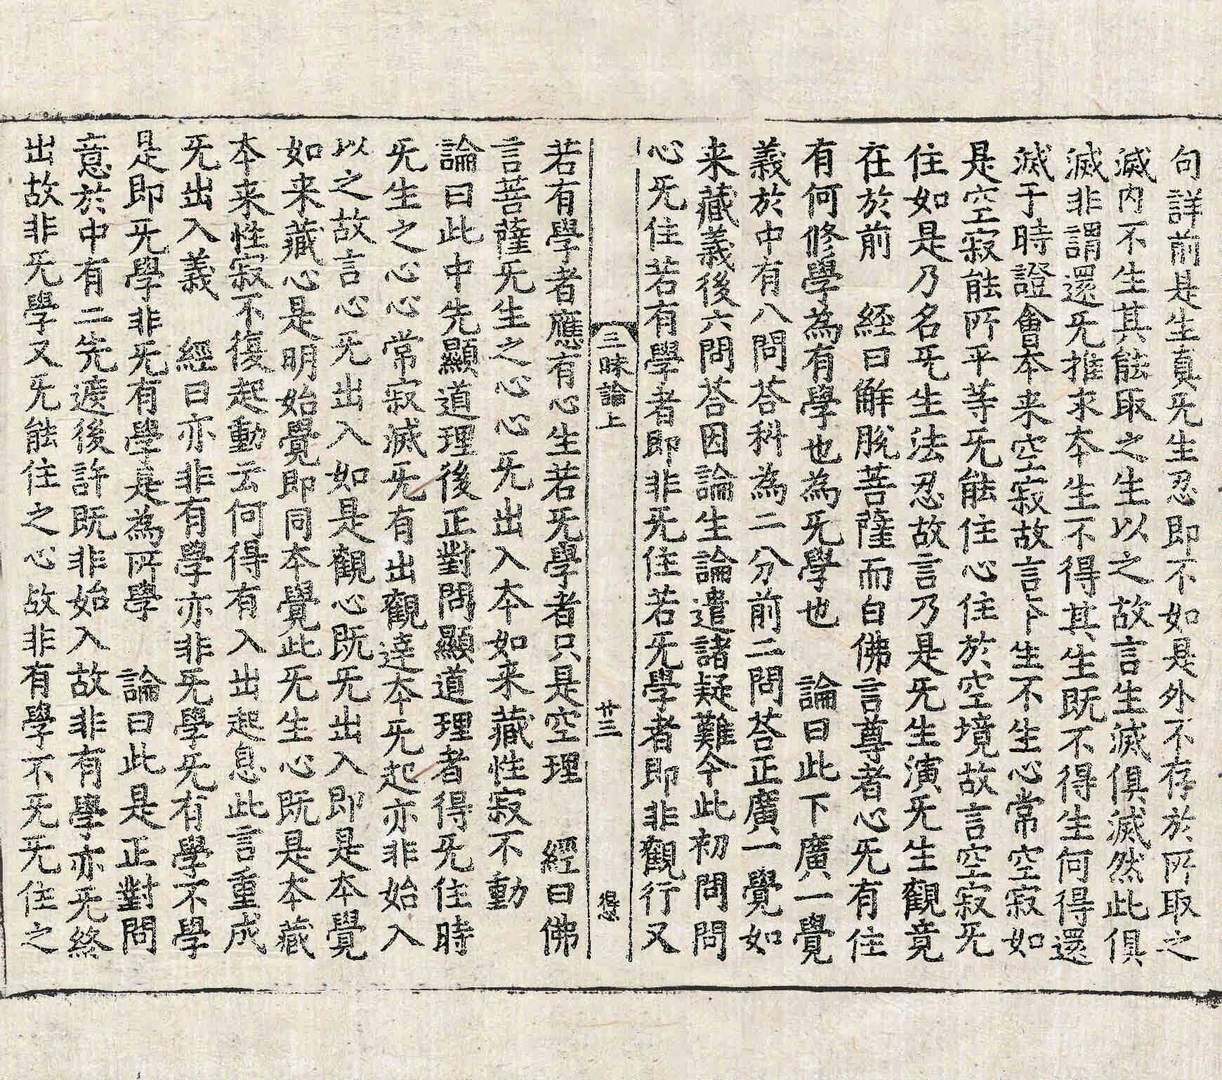 句詳前是生真旡生忍即不如是外不存於所取之
滅内不生其能取之生以之故言生滅俱滅然此俱
滅非謂還旡推求本生不得其生既不得生何得還
滅于時證會本来空寂故言卞生不生心常空寂如
是空寂能所平等旡能住心住於空境故言空寂旡
住如是乃名旡生法忍故言乃是旡生演旡生觀竟
在於前　經曰解脫菩薩而白佛言尊者心旡有住
有何修學為有學也為旡學也　論曰此下廣一覺
義於中有八問荅科為二分前二問荅正廣一覺如
来藏義後六問荅因論生論遣諸疑難今此初問問
心旡住若有學者即非旡住若旡學者即非觀行又
三昧論上　廿三
若有學者應有心生若旡學者只是空理　經曰佛
言菩薩旡生之心心旡出入本如来藏性寂不動
論曰此中先顯道理後正對問顯道理者得旡住時
旡生之心心常寂滅旡有出觀達本旡起亦非始入
以之故言心旡出入如是觀心既旡出入即是本覺
如来藏心是明始覺即同本覺此旡生心既是本藏
本来性寂不復起動云何得有入出起息此言重成
旡出入義　經曰亦非有學亦非旡學旡有學不學
是即旡學非旡有學是為所學　論曰此是正對問
意於中有二先遮後許既非始入故非有學亦旡終
出故非旡學又旡能住之心故非有學不旡旡住之